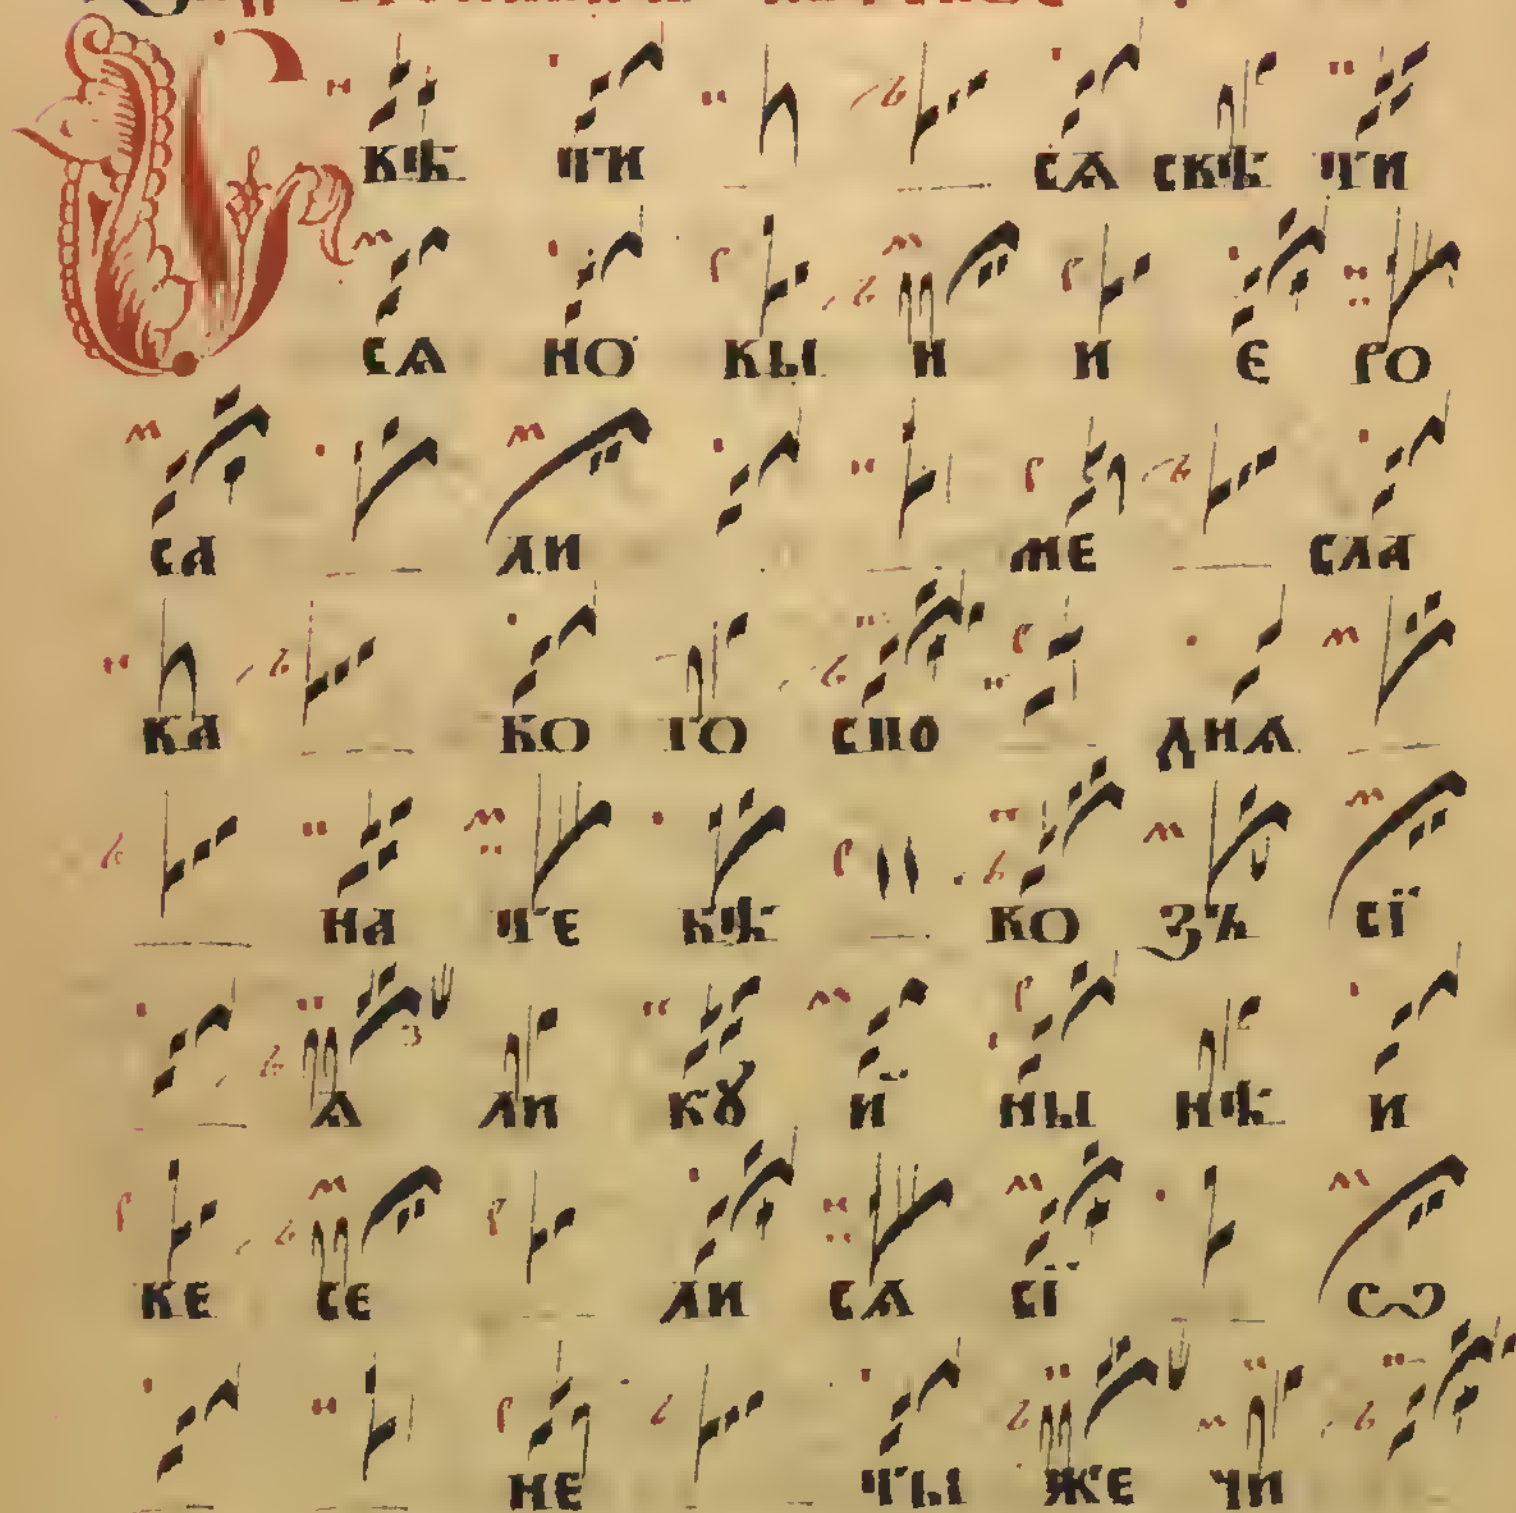 Свѣ ти сѧ свѣ ти
сѧ но вы и и е рꙋ
са ли ме сла
ва бо го спо днѧ
на те бѣ во зъ сї
ѧ ли кꙋ й ны нѣ и
ве се ли сѧ сї ѡ
не ты же чи